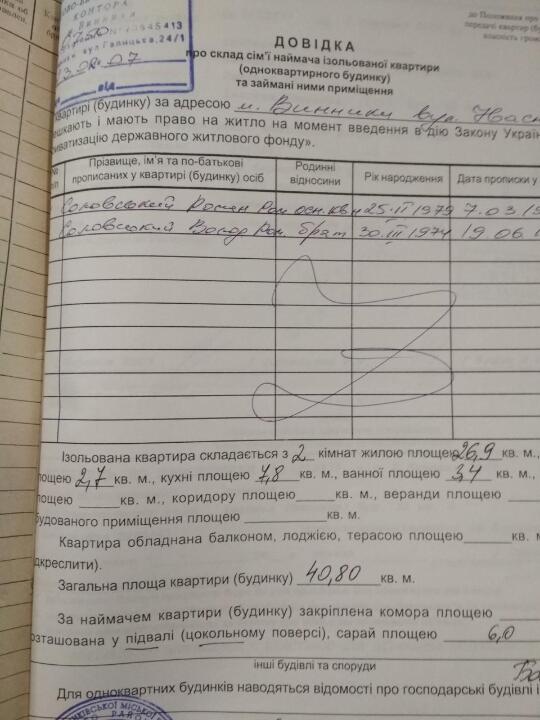 КОНТОРА
вул Галицька, 24/1
до Положення про
передачі квартир (бу
власність грома
ДОВІДКА
про склад сім'ї наймача ізольованої квартири
(одноквартирного будинку)
та займані ними приміщення
квартирі (будинку) за адресою м. Винники вул.
ешкають і мають право на житло на момент введення в дію Закону Украї
иватизацію державного житлового фонду».
Прізвище, ім'я та по-батькові прописаних у квартирі (будинку) осіб Родинні відносини Рік народження Дата прописки у
Ром. осн.кв. 25.II 1979 7.03.19
Ром. брат 30.III 1974 19.06.1
Ізольована квартира складається з 2 кімнат жилою площею 26,9 кв. м.,
площею 2,7 кв. м., кухні площею 7,8 кв. м., ванної площею 3,4 кв. м.,
площею ______ кв. м., коридору площею ______ кв. м., веранди площею
будованого приміщення площею ____________ кв. м.
Квартира обладнана балконом, лоджією, терасою площею ______ кв. м
ідкреслити).
Загальна площа квартири (будинку) 40,80 кв. м.
За наймачем квартири (будинку) закріплена комора площею
озташована у підвалі (цокольному поверсі), сарай площею 6,0
інші будівлі та споруди
Для одноквартних будинків наводяться відомості про господарські будівлі і